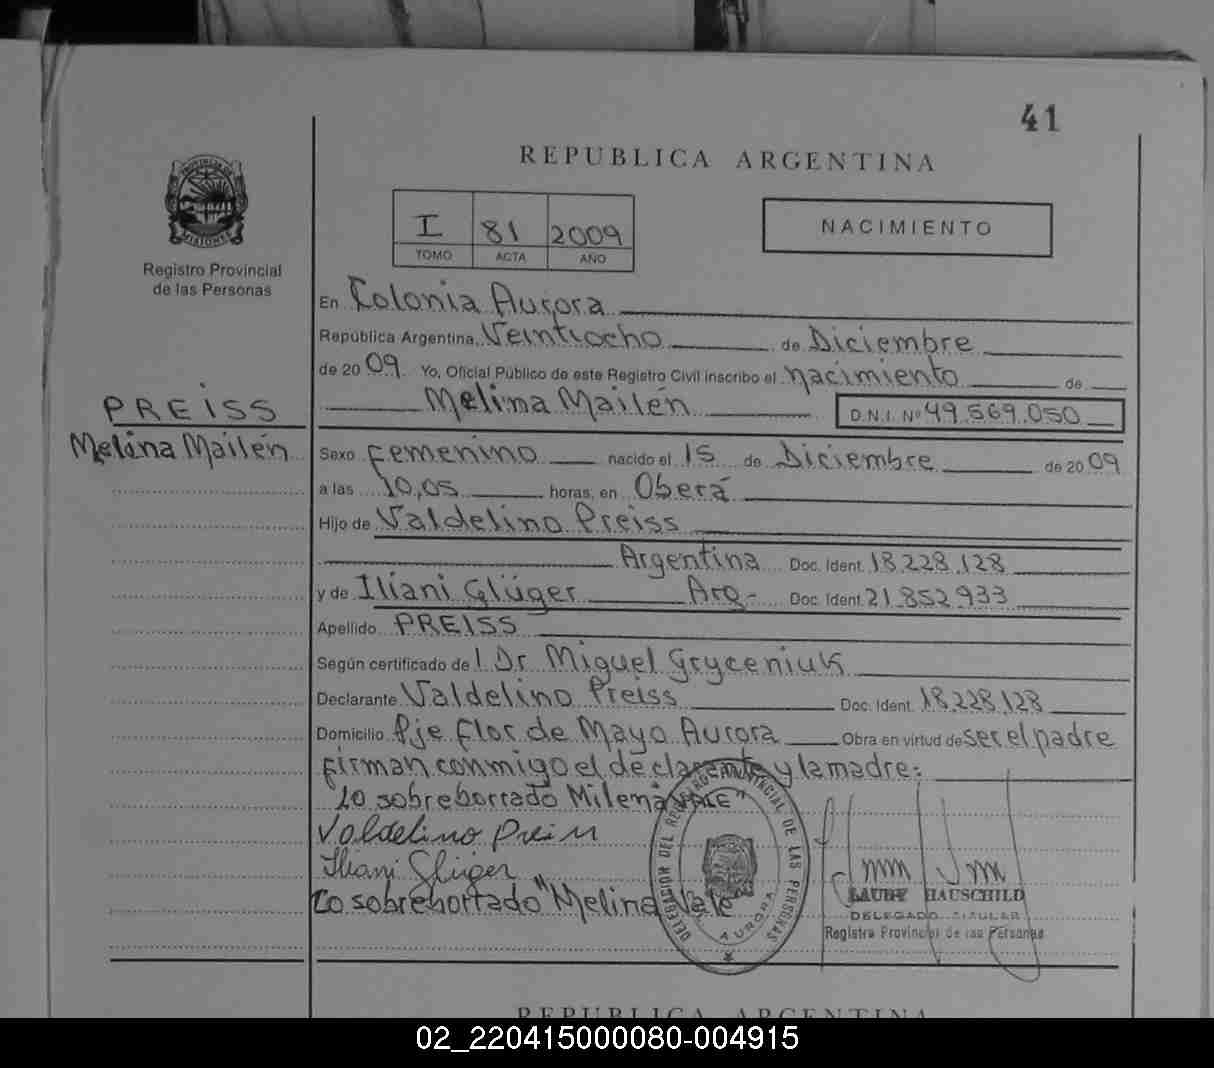 41
REPUBLICA ARGENTINA
PROVINCIA DE
MISIONES
Registro Provincial
de las Personas
I 81 2009
TOMO ACTA AÑO
NACIMIENTO
En Colonia Aurora
República Argentina, Veintiocho de Diciembre
de 2009 Yo, Oficial Público de este Registro Civil inscribo el nacimiento de
Melina Mailén D.N.I. Nº 49.569.050
PREISS
Melina Mailén
Sexo femenino nacido el 15 de Diciembre de 2009
a las 10,05 horas, en Oberá
Hijo de Valdelino Preiss
Argentina Doc. Ident. 18.228.128
y de Iliani Glüger Arg- Doc. Ident. 21.852.933
Apellido PREISS
Según certificado de l Dr Miguel Gryceniuk
Declarante Valdelino Preiss Doc. Ident. 18.228.128
Domicilio Pje Flor de Mayo Aurora Obra en virtud de ser el padre
firman conmigo el declarante y la madre:
Lo sobreborrado Milena VALE"
Valdelino Preiss
Iliani Glüger
Lo sobreborrado "Melina Vale
DELEGACION DEL REGISTRO PROVINCIAL DE LAS PERSONAS
AURORA
LAUDY HAUSCHILD
DELEGADO TITULAR
Registro Provincial de las Personas
REPUBLICA ARGENTINA
02_220415000080-004915